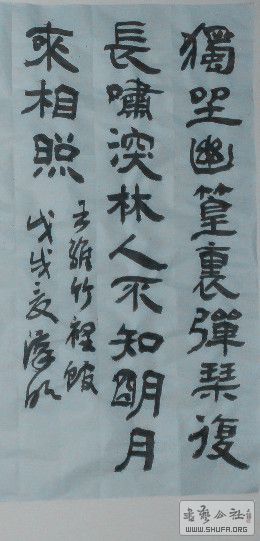 獨坐幽篁裏彈琹復
長嘯深林人不知明月
來相照
王維竹裡館
戊戌夏
书艺公社
WWW.SHUFA.ORG